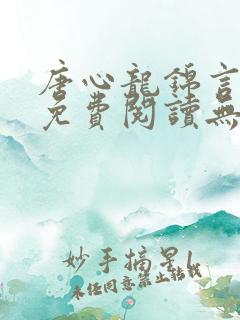 唐心龍錦言
免費閱讀無
妙手摘星
未經同意禁止轉載